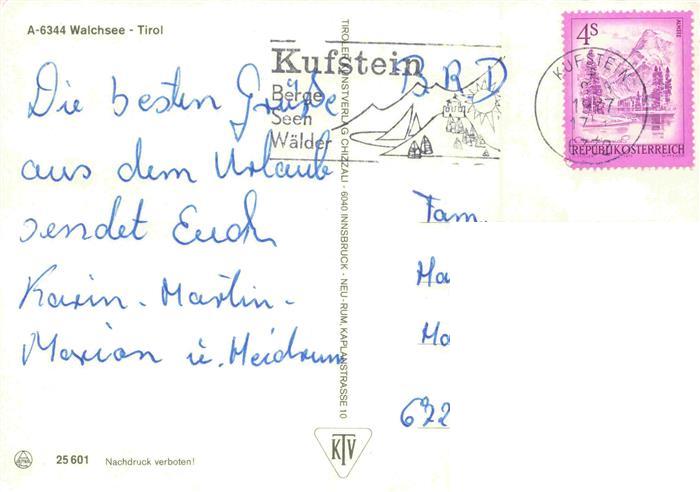 A-6344 Walchsee - Tirol
Die besten Grüße
aus dem Urlaub
sendet Euch
Karin - Martin -
Marion u. Heidrun
25 601 Nachdruck verboten!
TIROLER KUNSTVERLAG CHIZZALI · 6040 INNSBRUCK - NEU-RUM, KAPLANSTRASSE 10
KTV
Kufstein
Berge
Seen
Wälder
BRD
4S
REPUBLIK ÖSTERREICH
KUFSTEIN
Fam
Ma
Mo
672